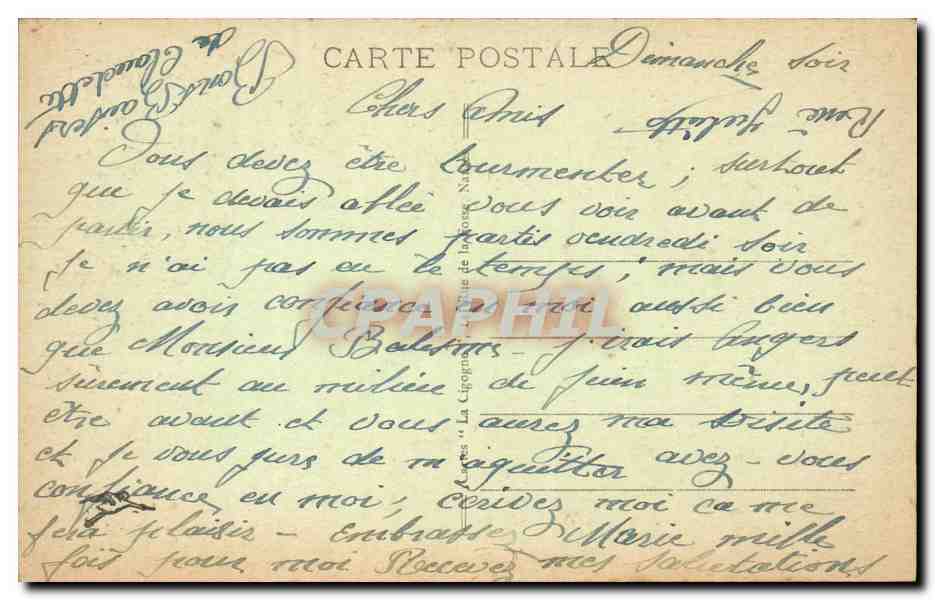 CARTE POSTALE
Dimanche soir
Bons Baisers
de Claudette
Chers Amis
René
Vous devez être tourmenter ; surtout
que je devais allée vous voir avant de
partir, nous sommes partis vendredi soir
je n'ai pas eu le temps ; mais vous
devez avoir confiance en moi aussi bien
que Monsieur - j'irais Angers
sûrement au milieu de juin même, peut
être avant et vous aurez ma visite
et je vous jure de m'aquitter avez-vous
confiance en moi ; écrivez moi ça me
fera plaisir - Embrassez Marie mille
fois pour moi Recevez mes salutations
Cartes "La Cigogne" Rue de la Fosse
CPAPHIL